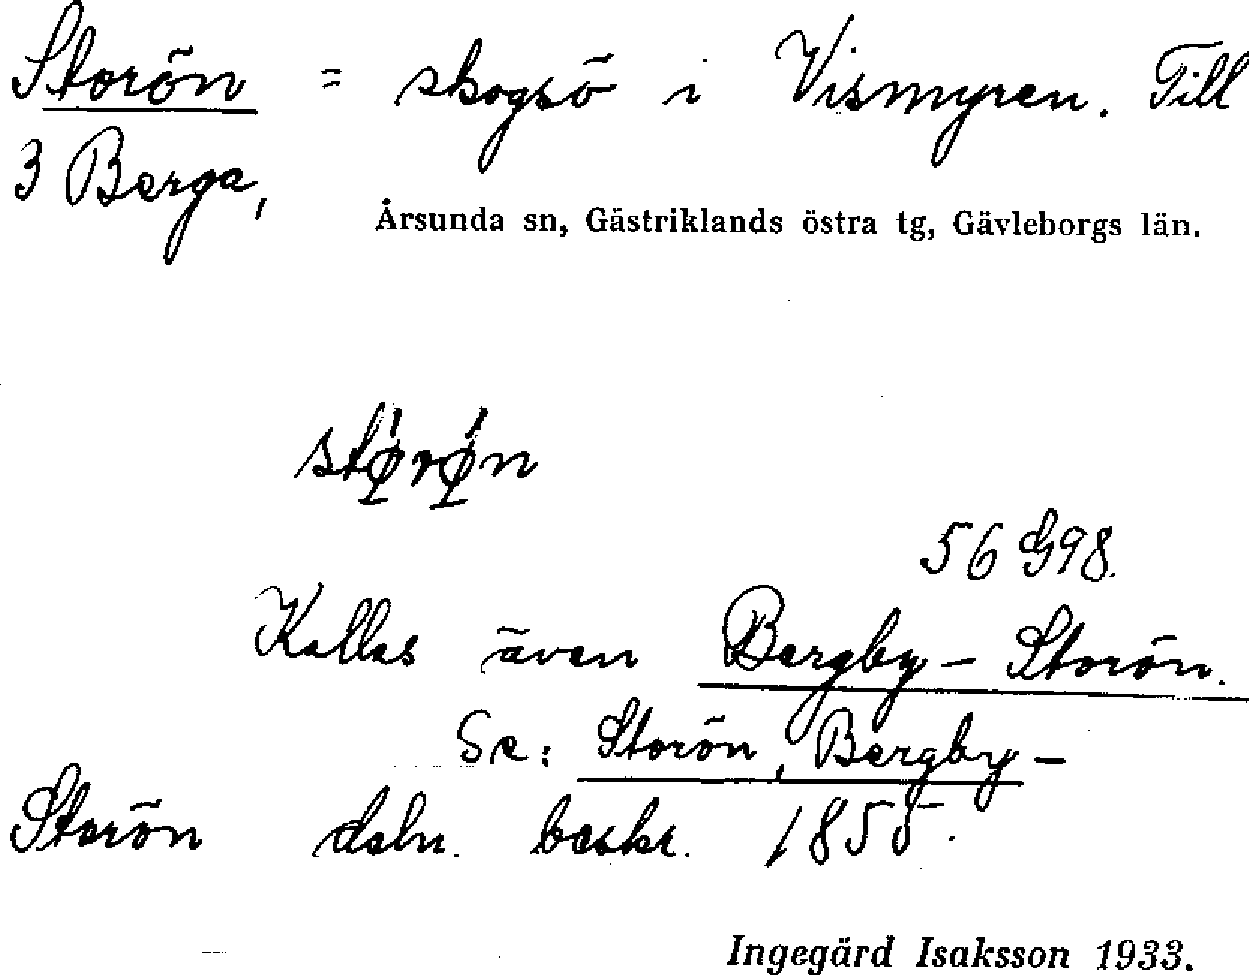 Storön = skogsö i Vismyren. Till
3 Berga,
Årsunda sn, Gästriklands östra tg, Gävleborgs län.
56 G98.
Kallas även Bergby-Storön.
Se: Storön, Bergby-
Storön beskr. 1855.
Ingegärd Isaksson 1933.